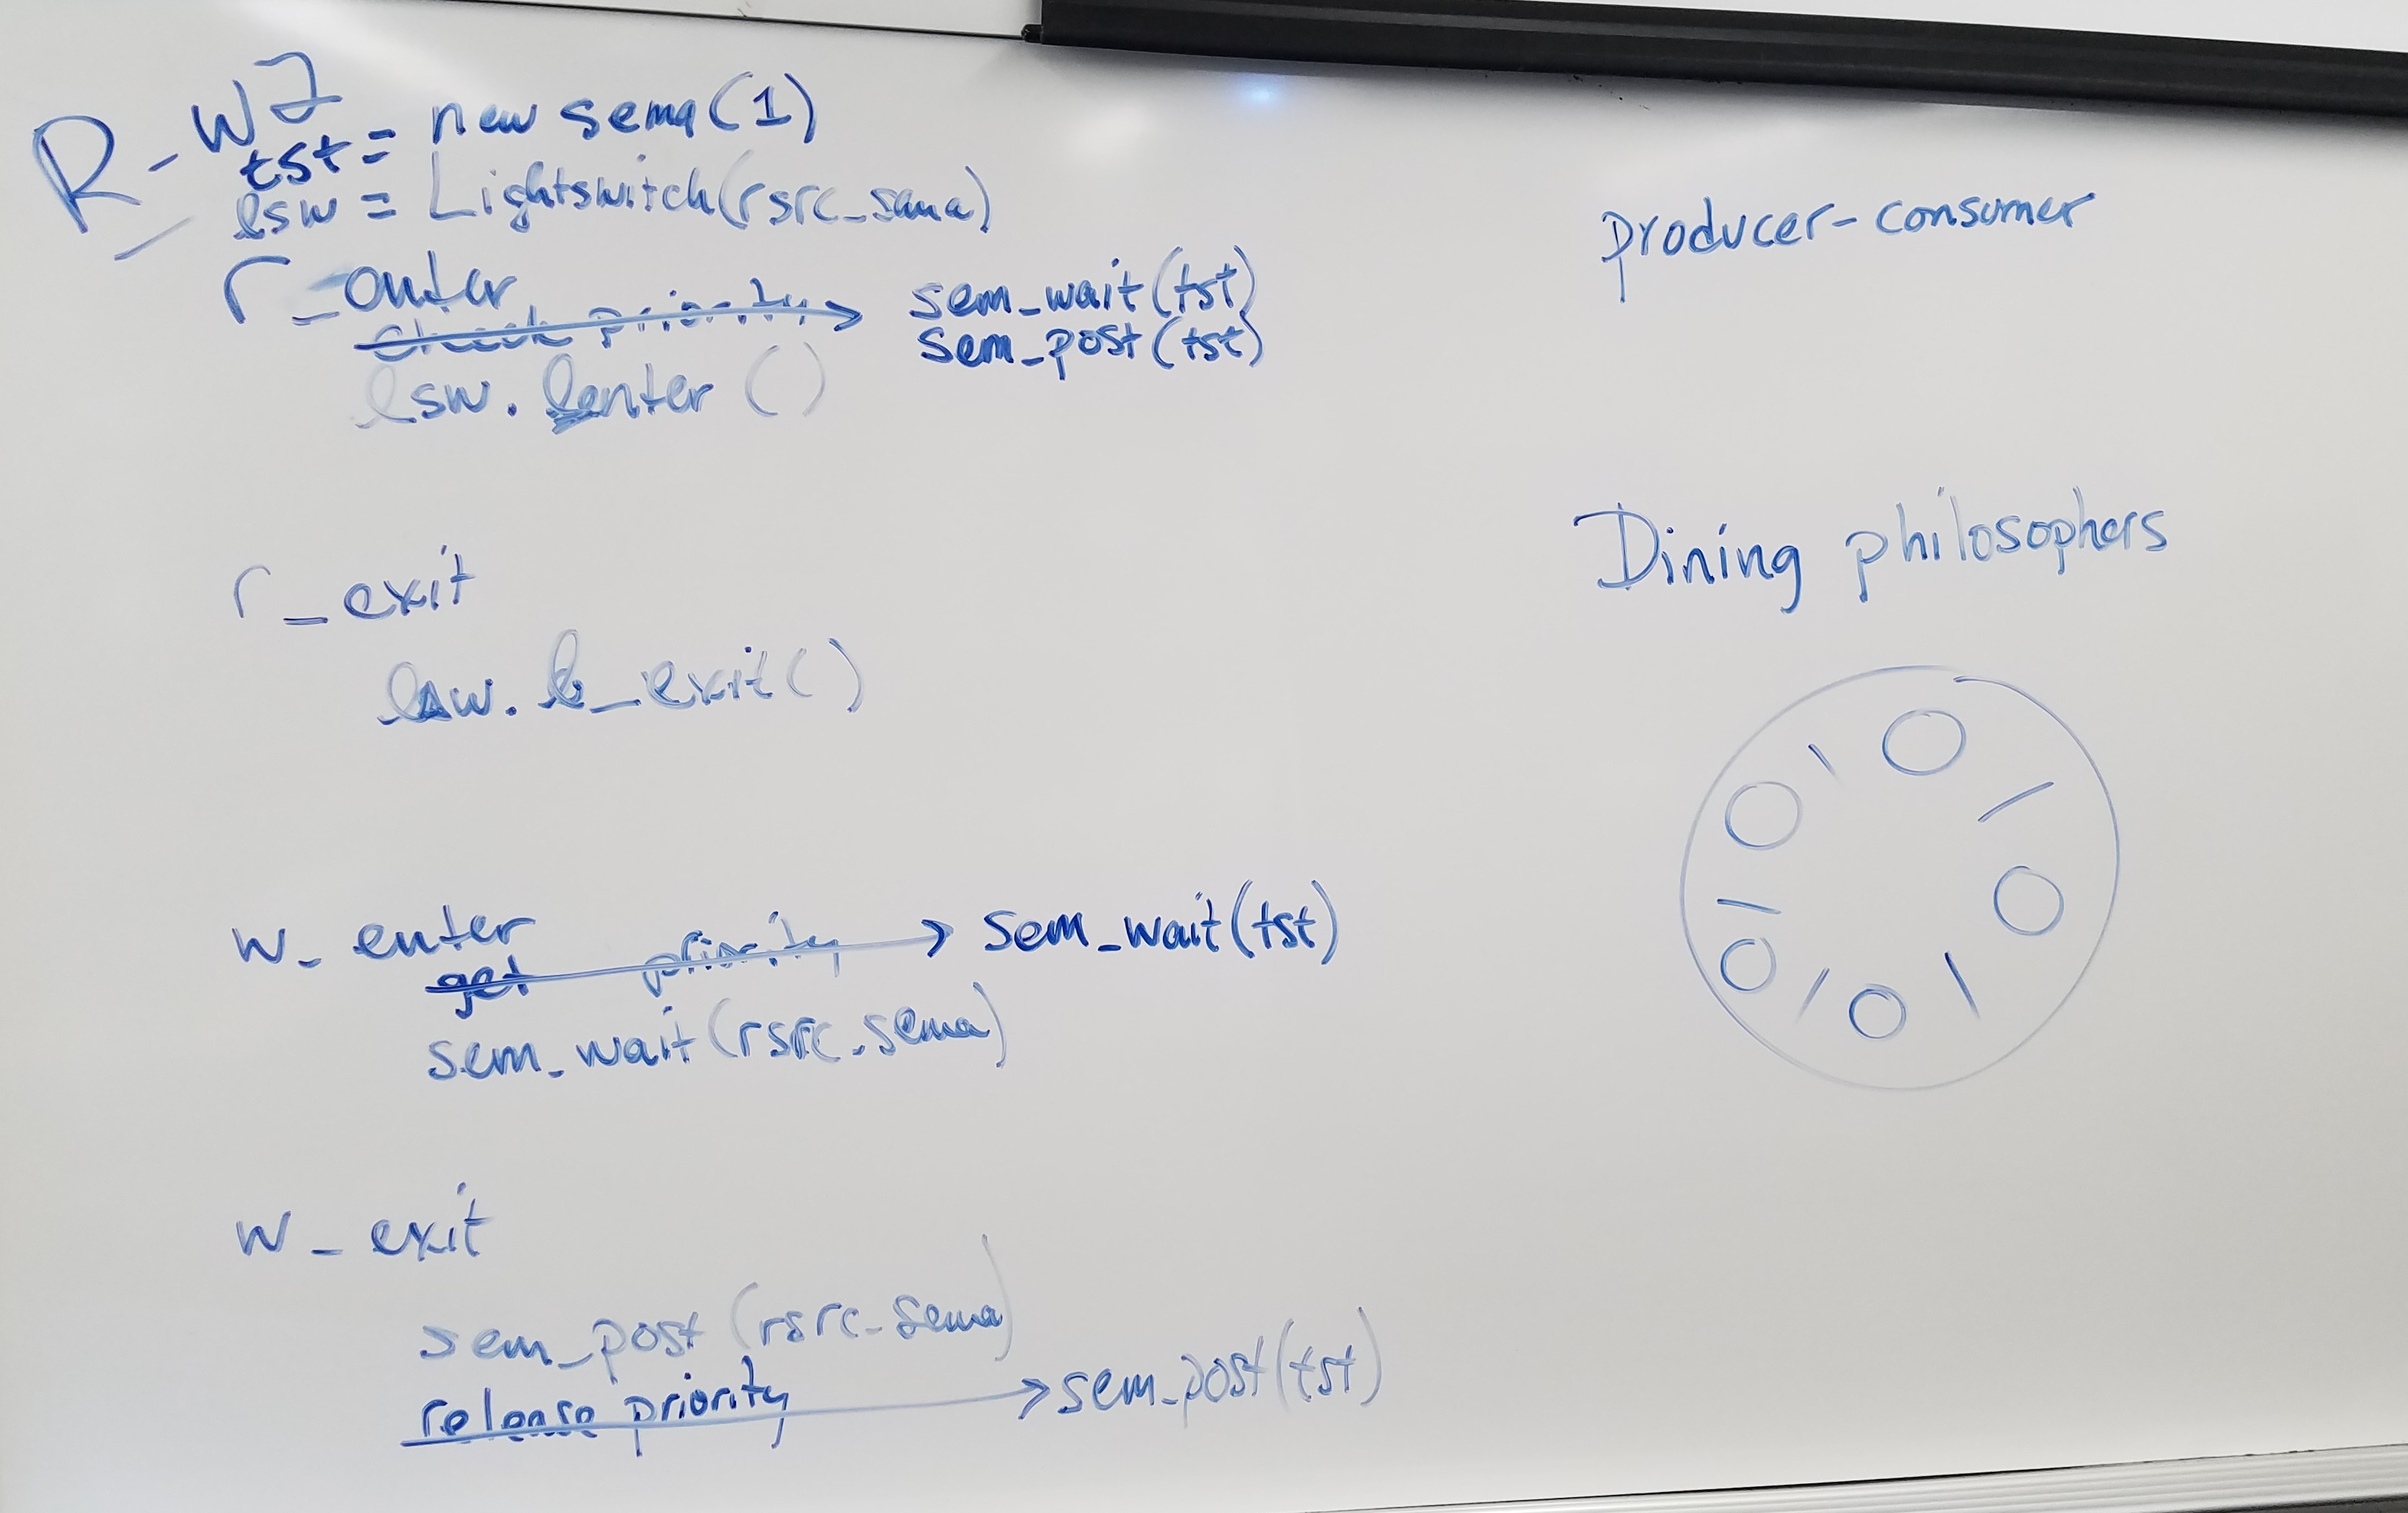 R-W 2
tst = new sema(1)
lsw = Lightswitch(rsrc_sema)
r_enter
check priority → sem_wait(tst)
sem_post(tst)
lsw.lenter()
r_exit
lsw.l_exit()
w_enter
get priority → sem_wait(tst)
sem_wait(rsrc_sema)
w_exit
sem_post(rsrc_sema)
release priority → sem_post(tst)
producer-consumer
Dining philosophers